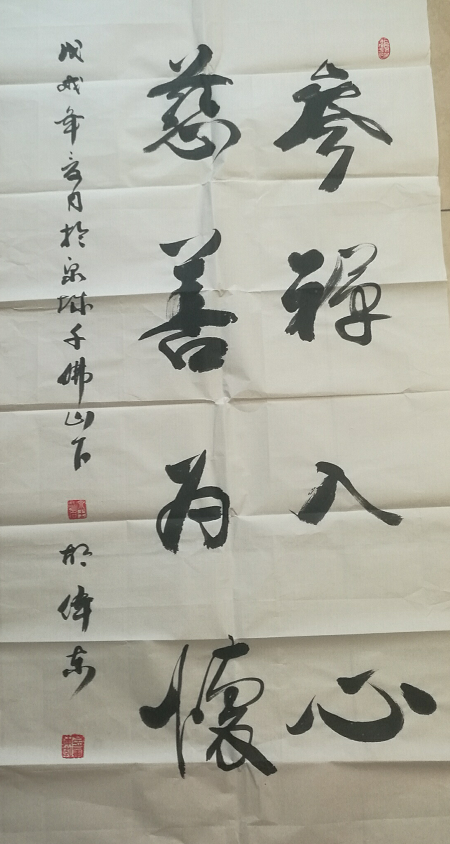 參禪入心
慈善為懷
戊戌年夏月於泉城千佛山下 胡偉東